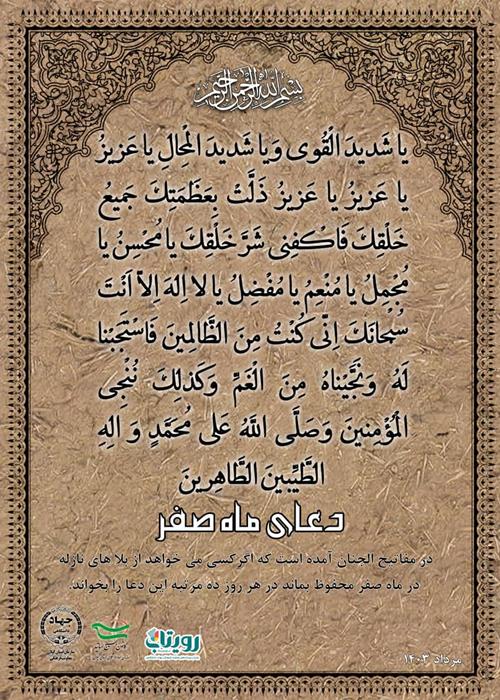 بسم الله الرحمن الرحیم
یا شَدیدَ الْقُوی وَیا شَدیدَ الْمِحالِ یا عَزیزُ
یا عَزیزُ یا عَزیزُ ذَلَّتْ بِعَظَمَتِكَ جَمیعُ
خَلْقِكَ فَاكْفِنی شَرَّ خَلْقِكَ یا مُحْسِنُ یا
مُجْمِلُ یا مُنْعِمُ یا مُفْضِلُ یا لا اِلهَ اِلاّ اَنْتَ
سُبْحانَكَ اِنّی كُنْتُ مِنَ الظَّالِمینَ فَاسْتَجَبْنا
لَهُ وَنَجَّیْناهُ مِنَ الْغَمِّ وَكَذلِكَ نُنْجِی
الْمُؤْمِنینَ وَصَلَّی اللَّهُ عَلی مُحَمَّدٍ وَ الِهِ
الطَّیِّبینَ الطَّاهِرینَ
دعای ماه صفر
در مفاتیح الجنان آمده است که اگر کسی می خواهد از بلا های نازله
در ماه صفر محفوظ بماند در هر روز ده مرتبه این دعا را بخواند.
جهاد
دانشگاهی
رویتاب
مرداد ۱۴۰۳